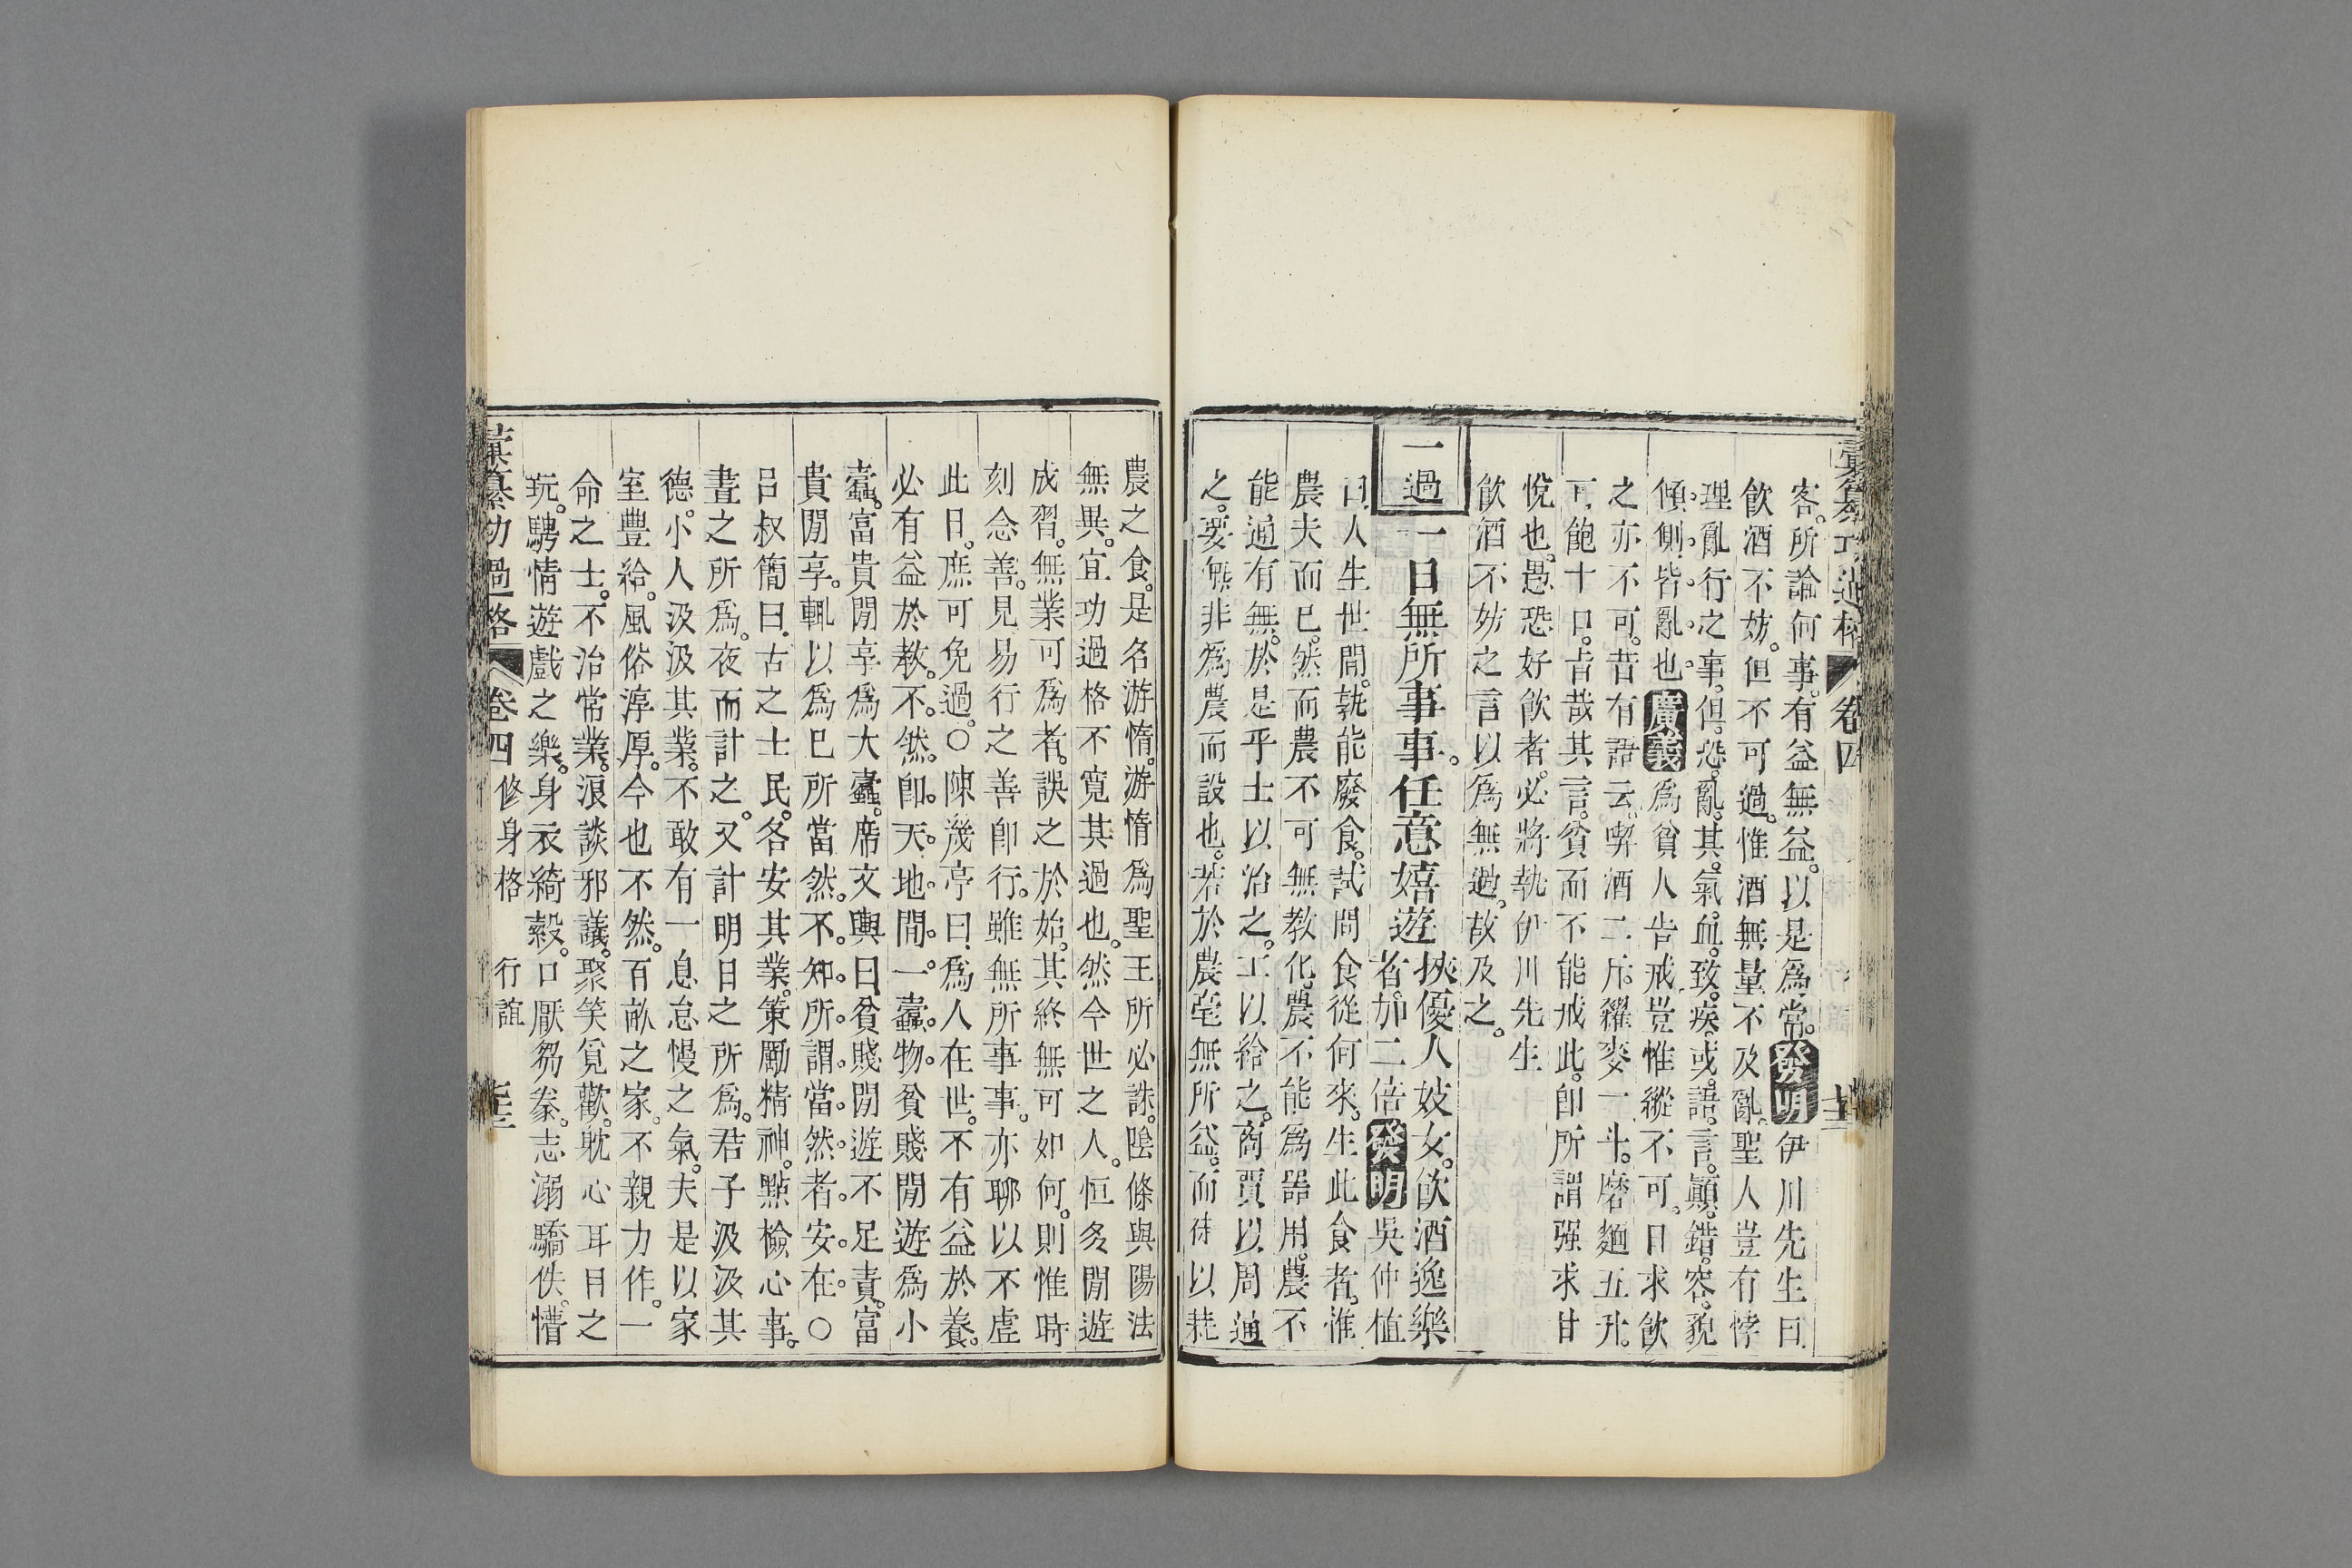 彙纂功過格 卷四
客。所論何事。有益無益。以是為常。發明伊川先生曰
飲酒不妨。但不可過。惟酒無量不及亂。聖人豈有悖
理亂行之事。但恐亂其氣血。致疾。或語言顛錯。容貌
傾側。皆亂也。廣義為貧人告戒。豈惟縱不可。日求飲
之亦不可。昔有語云。䴬酒二斤。糴麥一斗。磨麵五升。
可飽十口。旨哉其言。貧而不能戒此。即所謂強求甘
悅也。愚恐好飲者。必將執伊川先生
飲酒不妨之言以為無過。故及之。
一過 一日無所事事。任意嬉遊 挾優人妓女。飲酒逸樂
者。加二倍發明吳仲植
曰。人生世間。孰能廢食。試問食從何來。生此食者。惟
農夫而已。然而農不可無教化。農不能為器用。農不
能通有無。於是乎士以治之。工以給之。商賈以周通
之。要無非為農而設也。若於農毫無所益。而徒以耗
農之食。是名游惰。游惰為聖王所必誅。陰條與陽法
無異。宜功過格不寬其過也。然今世之人。恒多閒遊
成習。無業可為者。誤之於始。其終無可如何。則惟時
刻念善。見易行之善即行。雖無所事事。亦聊以不虛
此日。庶可免過。○陳幾亭曰。為人在世。不有益於養。
必有益於教。不然。即天地間一蠹物。貧賤閒遊為小
蠹。富貴閒享為大蠹。席文輿曰。貧賤閒遊不足責。富
貴閒享。輒以為已所當然。不知所謂當然者安在。○
呂叔簡曰。古之士民。各安其業。策勵精神。點檢心事。
晝之所為。夜而計之。又計明日之所為。君子汲汲其
德。小人汲汲其業。不敢有一息怠慢之氣。夫是以家
室豐給。風俗淳厚。今也不然。百畝之家。不親力作。一
命之士。不治常業。浪談邪議。聚笑覓歡。耽心耳目之
玩。騁情遊戲之樂。身衣綺縠。口厭芻豢。志溺驕佚。懵
彙纂功過格 卷四 修身格 行誼